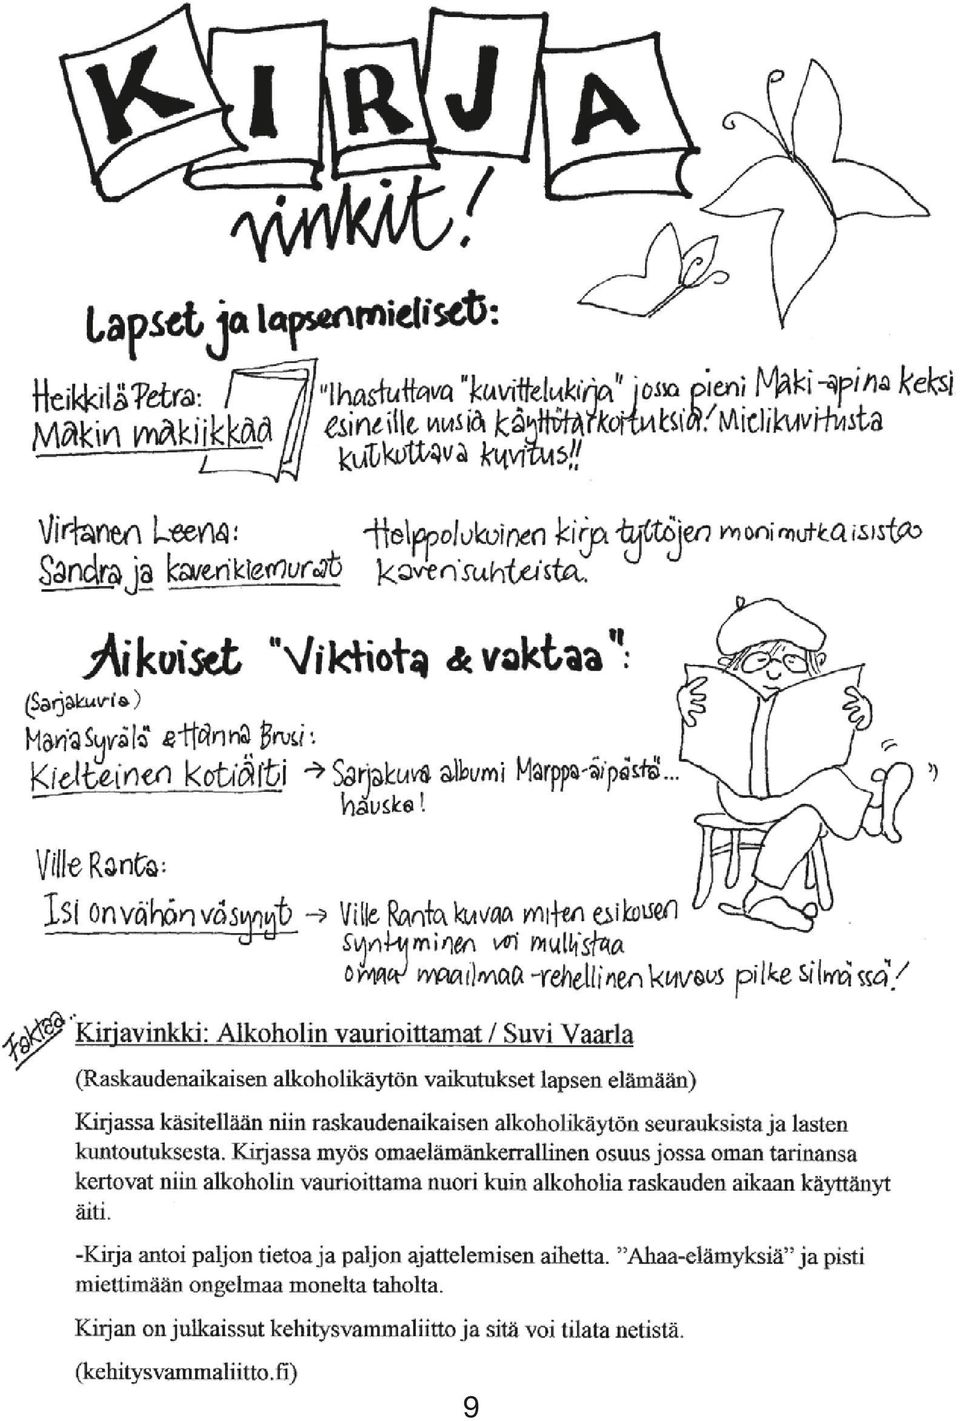 KIRJA
vinkit!
Lapset ja lapsenmieliset:
Heikkilä Petra:
Mäkin mäkiikkää
"Ihastuttava "kuvittelukirja" jossa pieni Mäki-apina keksi
esineille uusiä käyttötarkoituksia! Mielikuvitusta
kutkuttava kuvitus!!
Virtanen Leena:
Sandra ja kaverikiemurat
Helppolukuinen kirja tyttöjen monimutkaisista
kaverisuhteista.
Aikuiset "Viktiota & vaktaa":
(Sarjakuvia)
Maria Syrälä & Hanna Brusi:
Kielteinen kotiäiti → Sarjakuva albumi Marppa-äipästä...
hauska!
Ville Ranta:
Isi on vähän väsynyt → Ville Ranta kuvaa miten esikoisen
syntyminen voi mullistaa
omaa maailmaa -rehellinen kuvaus pilke silmässä!
Faktaa..
Kirjavinkki: Alkoholin vaurioittamat / Suvi Vaarla
(Raskaudenaikaisen alkoholikäytön vaikutukset lapsen elämään)
Kirjassa käsitellään niin raskaudenaikaisen alkoholikäytön seurauksista ja lasten
kuntoutuksesta. Kirjassa myös omaelämänkerrallinen osuus jossa oman tarinansa
kertovat niin alkoholin vaurioittama nuori kuin alkoholia raskauden aikaan käyttänyt
äiti.
-Kirja antoi paljon tietoa ja paljon ajattelemisen aihetta. ”Ahaa-elämyksiä” ja pisti
miettimään ongelmaa monelta taholta.
Kirjan on julkaissut kehitysvammaliitto ja sitä voi tilata netistä.
(kehitysvammaliitto.fi)
9